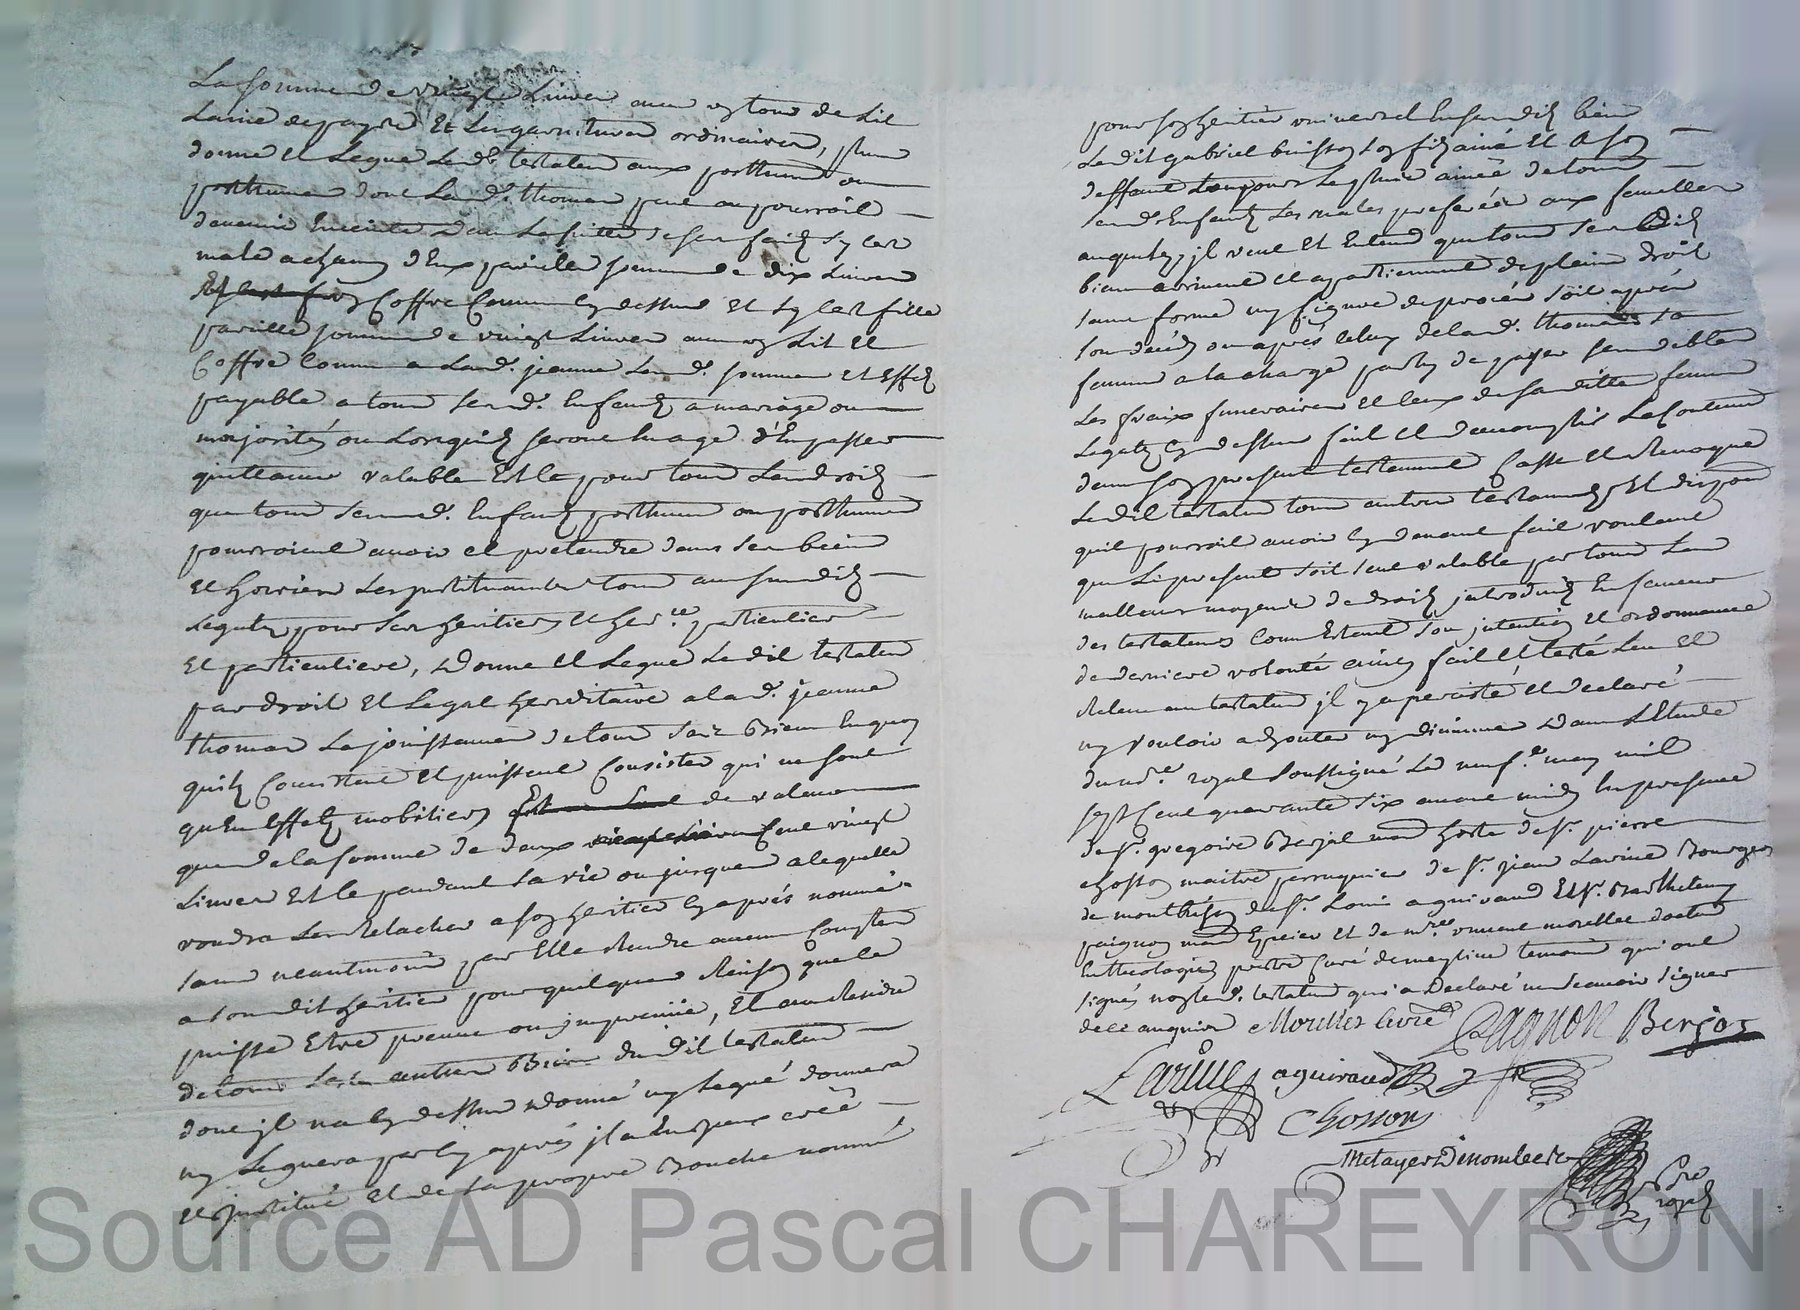 La somme de vingt Livres avec un tour de Lit
Laine de payis Et Les garnitures ordinaires, plus
donne Et Legue Led. testateur aux posthume ou
posthumes dont Lad. thomas peut ou pourroit
devenir Enceinte Dans La suitte de ses faits sy c'est
male a chacun d'Eux pareille somme de dix Livres
Coffre Comme cy dessus Et sy c'est fille
pareille somme de vingt Livres avec un Lit Et
Coffre Comme a Lad. jeanne Lesd. sommes Et Effets
payable a tous sesd. Enfants a mariage ou
majorités ou Lorsquils seront En age d'En passer
quittance valable Et ce pour tous Les droits
que tous sesd. Enfants posthume ou posthumes
pourroient avoir et pretendre dans ses biens
Et hoiries Les instituant tous aux susdits
Legats pour ses heritiers Et her.re particuliers
Et particuliere, Donne Et Legue Ledit testateur
par droit Et Legat hereditaire a lad. jeanne
thomas La jouissance de tous ses Biens En quoy
quils Consistent Et puissent Consister qui ne sont
qu'En Effets mobiliers de valeur
que de la somme de deux Cent vingt
Livres Et ce pendant sa vie ou jusques a lequelle
voudra Les Relacher a son heritier cy après nommé
sans neantmoins par Elle Rendre aucun Comptes
a son dit heritier pour quelques Raisons que ce
puisse Etre preveue ou jmpreveue, Et au Residu
de tous Les autres Biens dudit testateur
dont jl na cy dessus donné ny Legué donnera
ny Leguera par cy après jl a Et créé
et jnstitué Et de sa propre Bouche nommé
pour son heritier universel En ses dits biens
Ledit gabriel buisson son fils ainé Et a son
deffaut toujours Le plus ainée de tous
sesd. Enfants Les males preferées aux femelles
auquel jl veut Et Entend que tous sesdits
biens arrivent et apartiennent de plain droit
sans forme ny figure de procès soit après
son decés ou après celuy de lad. thomas sa
femme a la charge par luy de payer ses debtes
Les fraix funeraires Et ceux de sa ditte femme
Legats cy dessus fait Et d'accomplir Le Contenu
dans son present testament Casse Et Revoque
Ledit testateur tous autres testaments Et dispon
quil pourroit avoir cy devant fait voulant
que Le present soit seul valable par tous Les
meilleurs moyens de droits jntroduits En faveur
des testateurs Comme Etant son jntention Et ordonnance
de derniere volonté ainsy fait Et testé Leu Et
Releu au testateur jl y a percisté et declaré
ny vouloir adjouter ny diminuer Dans L'Etude
du no.re royal soussigné Le neuf.e may mil
sept Cent quarante six avant midy En presence
de S.r gregoire Berjat mar.d hoste de S.r pierre
chosson maitre perruquier de S.r jean Larive Bourgeois
de montbrison de S.r Louis aguiraud Et S.r Barthelemy
paignon mar.d Epicier Et de m.re vincent morellet docteur
En theologie pretre Curé de temoins qui ont
signés non led. testateur qui a Declaré ne Scavoir signer
de ce enquis Morellet Curé Pagnon Berjat
Larive aguiraud
Chosson
Metayer Dénombert
no.re royal
Source AD Pascal CHAREYRON